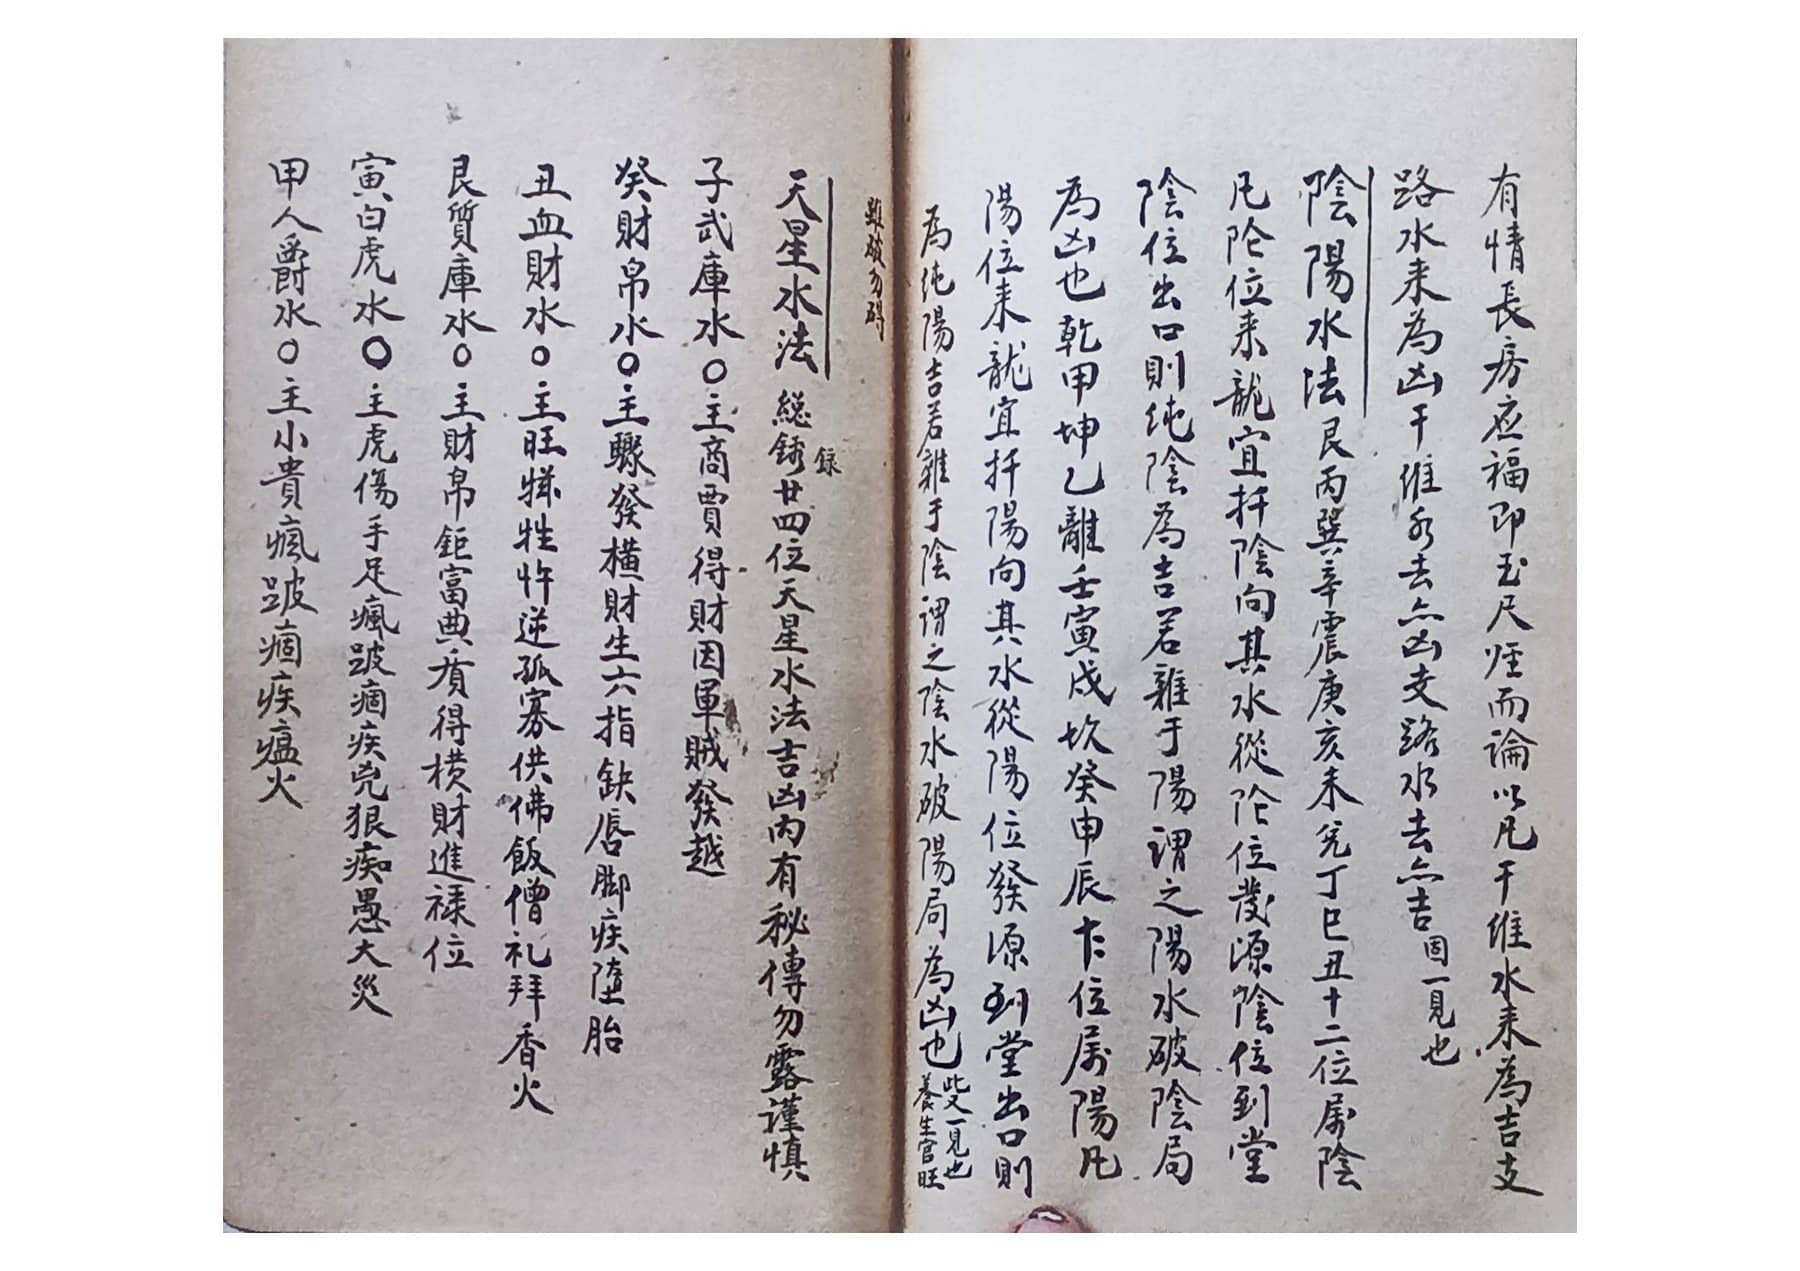 有情長房应福即玉尺经而論以凡干维水来為吉支
路水来為凶干维水去亦凶支路水去亦吉固一見也
陰陽水法艮丙巽辛震庚亥未兑丁巳丑十二位属陰
凡阴位来龍宜扦陰向其水從阴位發源陰位到堂
陰位出口則纯陰為吉若雜于陽謂之陽水破陰局
為凶也乾甲坤乙離壬寅戌坎癸申辰十二位属陽凡
陽位来龍宜扦陽向其水從陽位發源到堂出口則
為纯陽吉若雜于陰謂之陰水破陽局為凶也此又一見也
養生官旺
雖破勿碍
天星水法総錄廿四位天星水法吉凶内有秘傳勿露謹慎
録
子武庫水〇主商賈得財因軍賊發越
癸財帛水〇主驟發横財生六指缺唇脚疾堕胎
丑血財水〇主旺犠牲忤逆孤寡供佛飯僧礼拜香火
艮質庫水〇主財帛鉅富典質得横財進禄位
寅白虎水〇主虎傷手足瘋跛痼疾兇狠痴愚大災
甲人爵水〇主小貴瘋跛痼疾瘟火